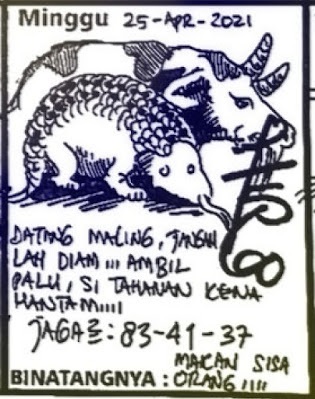 Minggu 25-APR-2021
DATANG MALING, JANGAN
LAH DIAM,,, AMBIL
PALU, SI TAHANAN KENA
HANTAM,,,,
JAGA2: 83-41-37
MAKAN SISA
BINATANGNYA : ORANG,,,,